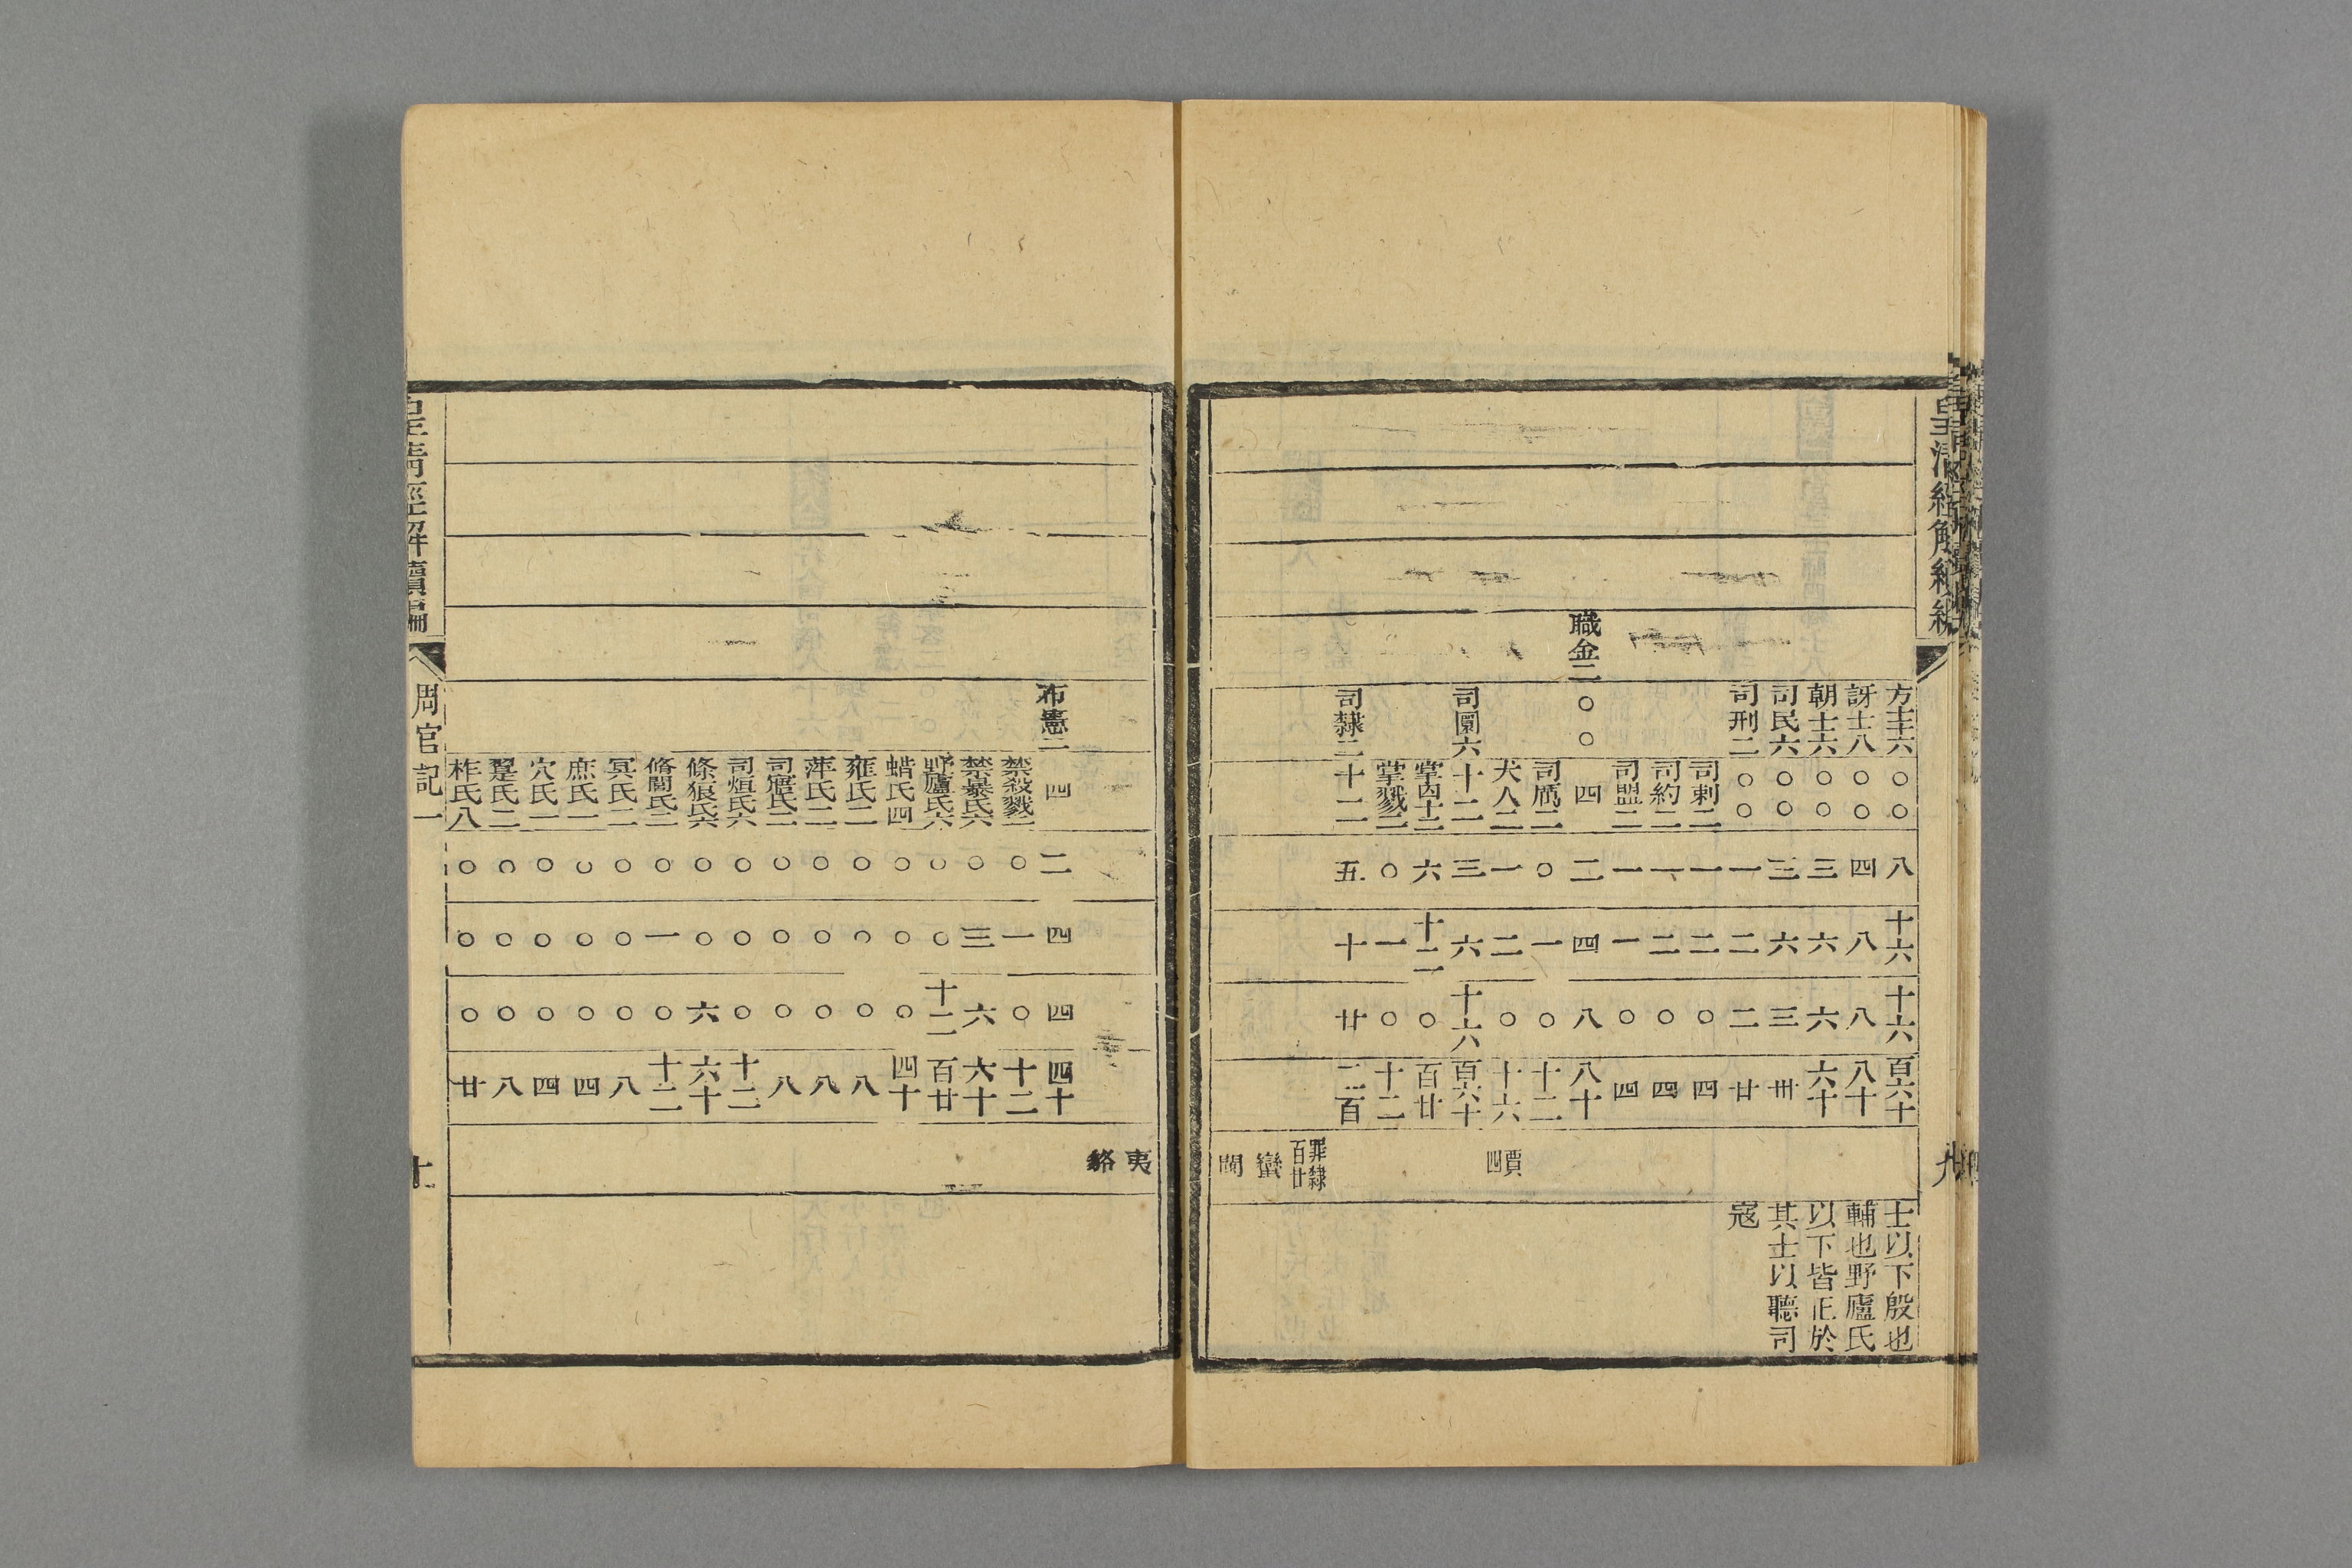 皇清經解續編
方士十六○○八十六十六百六十士以下殷也
訝士八○○四八八八十輔也野廬氏
朝士六○○三六六六十以下皆正於
司民六○○三六三卅其士以聽司
司刑二○○一二二廿寇
司剌二一二○四
司約二一二○四
司盟二一一○四
職金二○○四二四八八十
司厲二○一○十二
犬人二一二○十六賈四
司圜六十二三六十六百六十
掌囚十二六十二○百廿
掌戮二○一○十二
司隸二十二五十廿二百
罪隸百廿
蠻
閩
夷
貉
布憲二四二四四四十
禁殺戮二○一○十二
禁暴氏六○三六六十
野廬氏六○○十二百廿
蜡氏四○○○四十
雍氏二○○○八
萍氏二○○○八
司寤氏二○○○八
司烜氏六○○○十二
條狼氏六○○六六十
脩閭氏二○一○十二
冥氏二○○○八
庶氏一○○○四
穴氏一○○○四
翨氏二○○○八
柞氏八○○○廿
皇清經解續編
周官記一